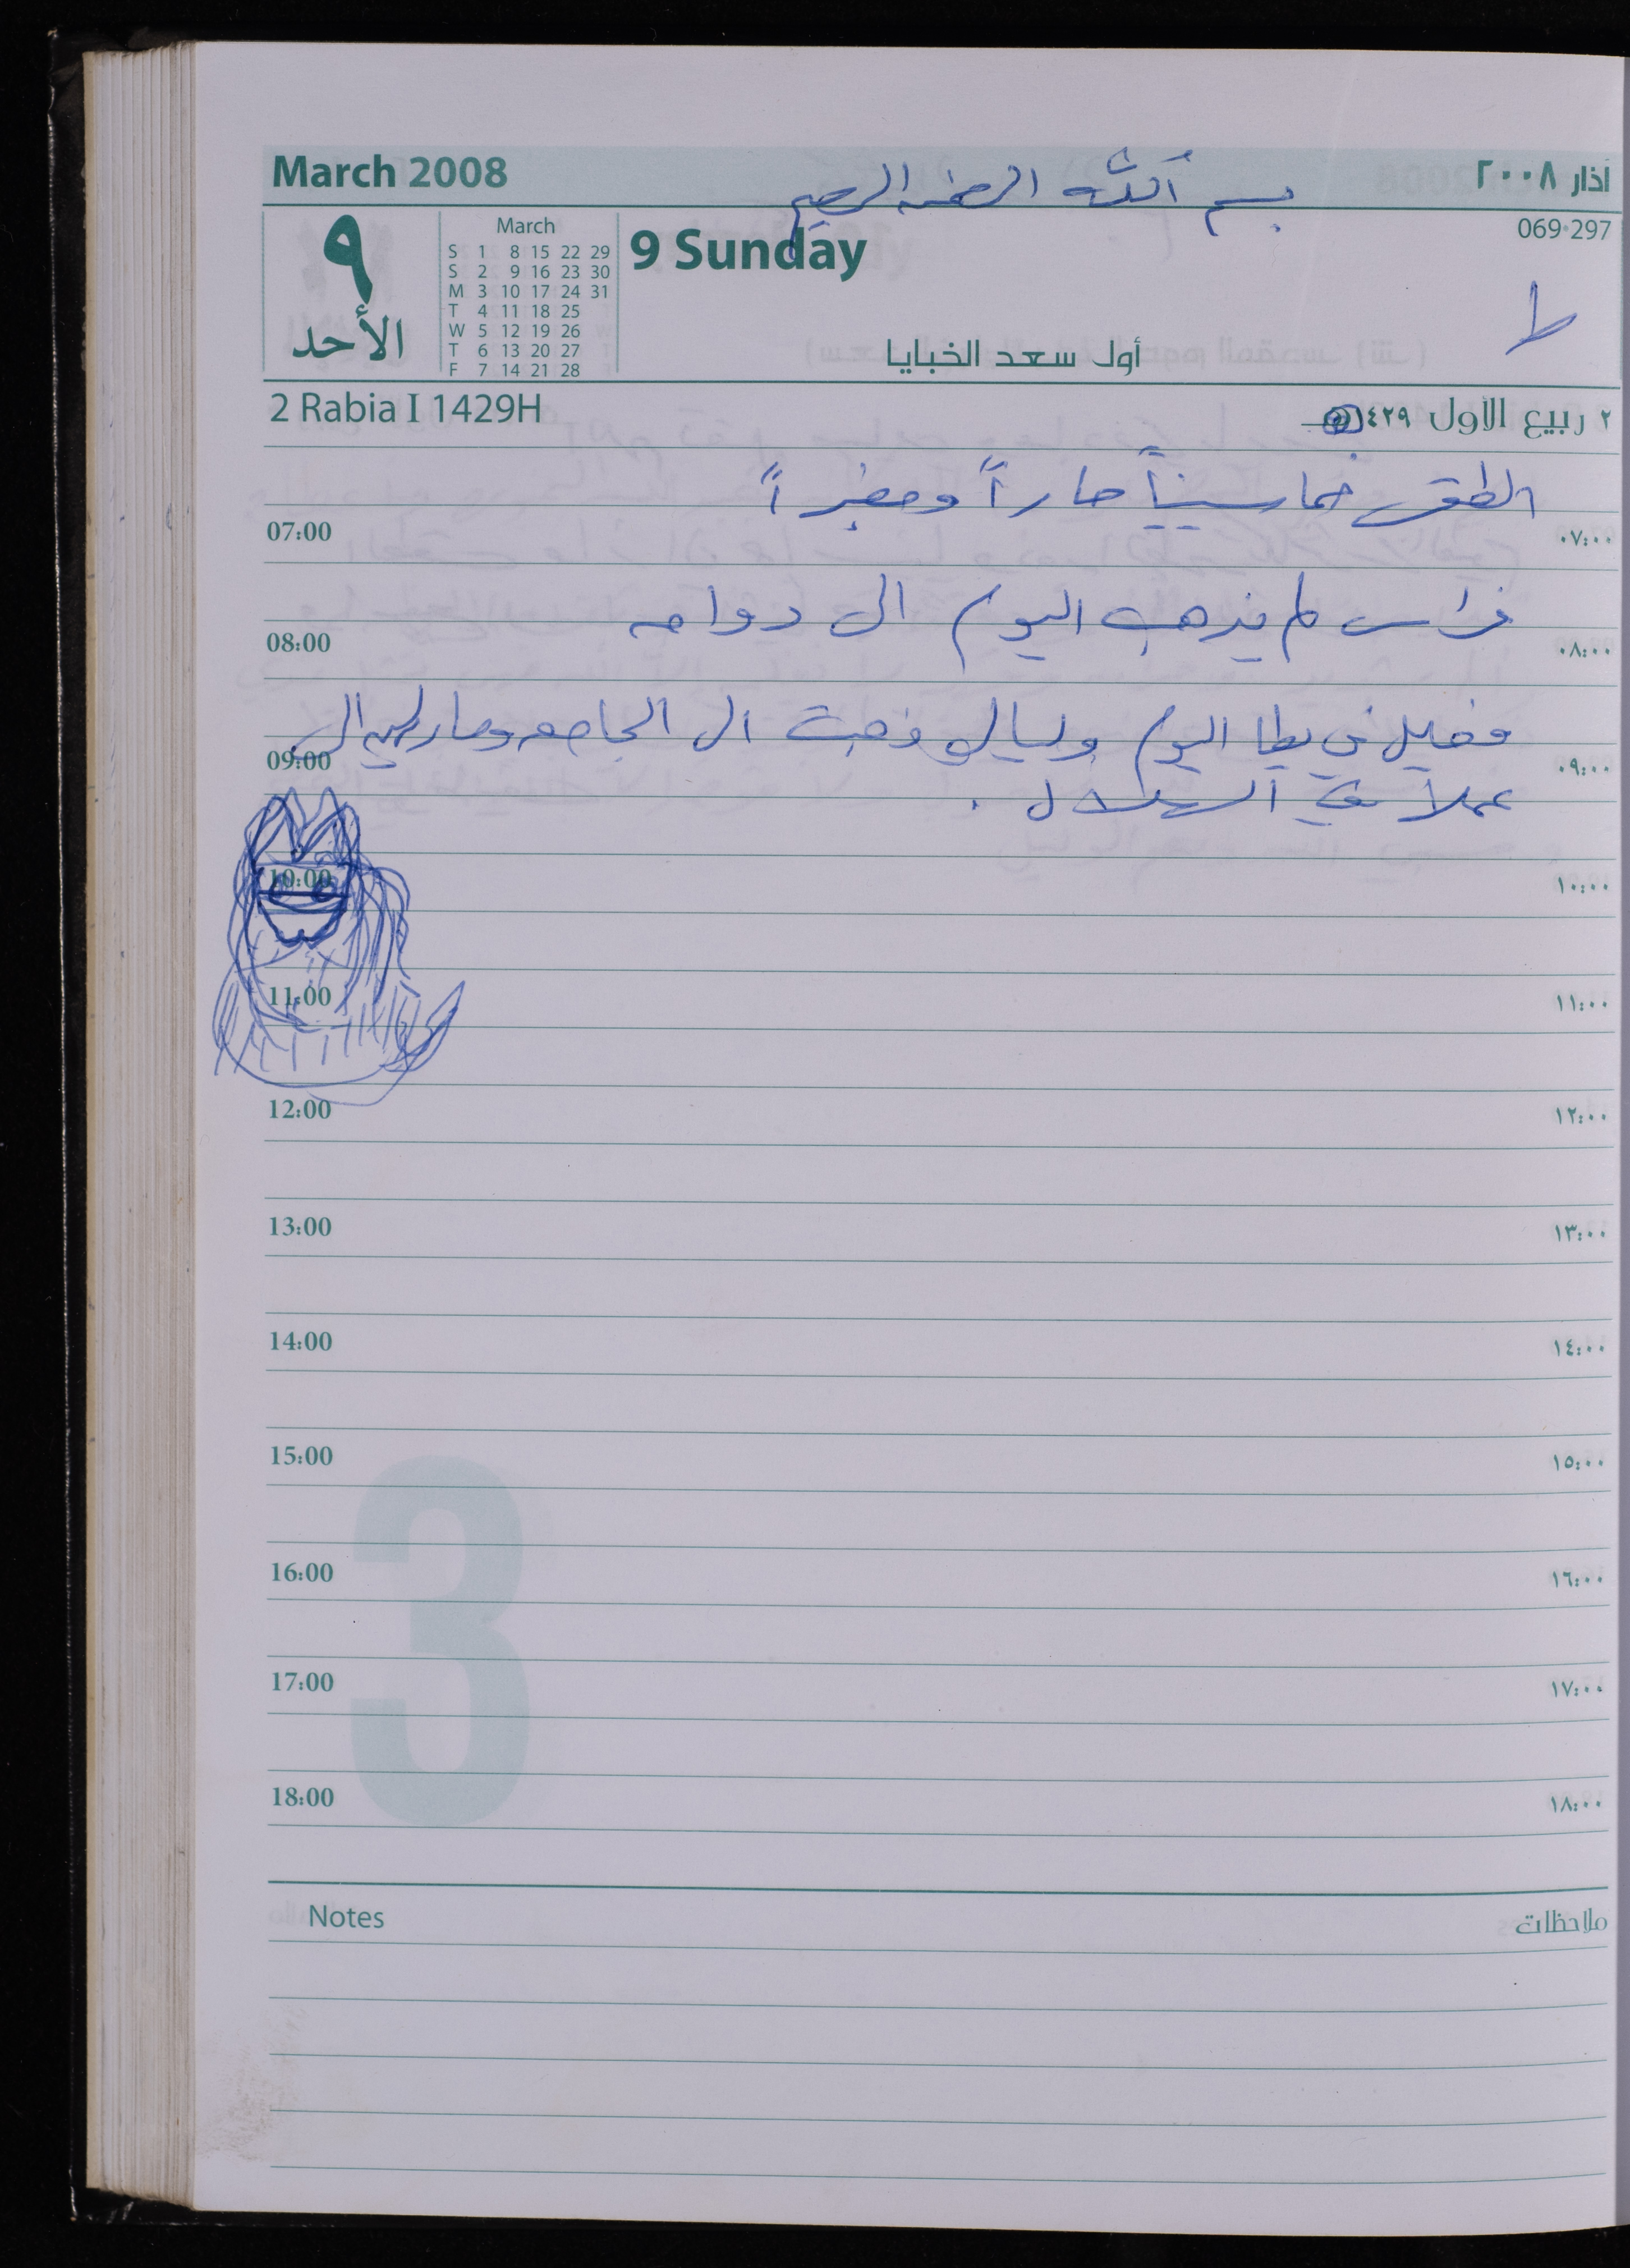 March 2008
بسم الله الرحمن الرحيم
آذار ٢٠٠٨
٩
الأحد
March
S 1 8 15 22 29
S 2 9 16 23 30
M 3 10 17 24 31
T 4 11 18 25
W 5 12 19 26
T 6 13 20 27
F 7 14 21 28
9 Sunday
069-297
ط
أول سعد الخبايا
2 Rabia I 1429H
٢ ربيع الأول ١٤٢٩
الطقس خماسينياً حاراً ومغبراً
07:00 ٠٧:٠٠
فراس لم يذهب اليوم الى دوامه
08:00 ٠٨:٠٠
في يطا اليوم وليالي ذهبت الى الجامعه الى
09:00 ٠٩:٠٠
عملا في الهلال .
10:00 ١٠:٠٠
11:00 ١١:٠٠
12:00 ١٢:٠٠
13:00 ١٣:٠٠
14:00 ١٤:٠٠
15:00 ١٥:٠٠
3
16:00 ١٦:٠٠
17:00 ١٧:٠٠
18:00 ١٨:٠٠
Notes ملاحظات